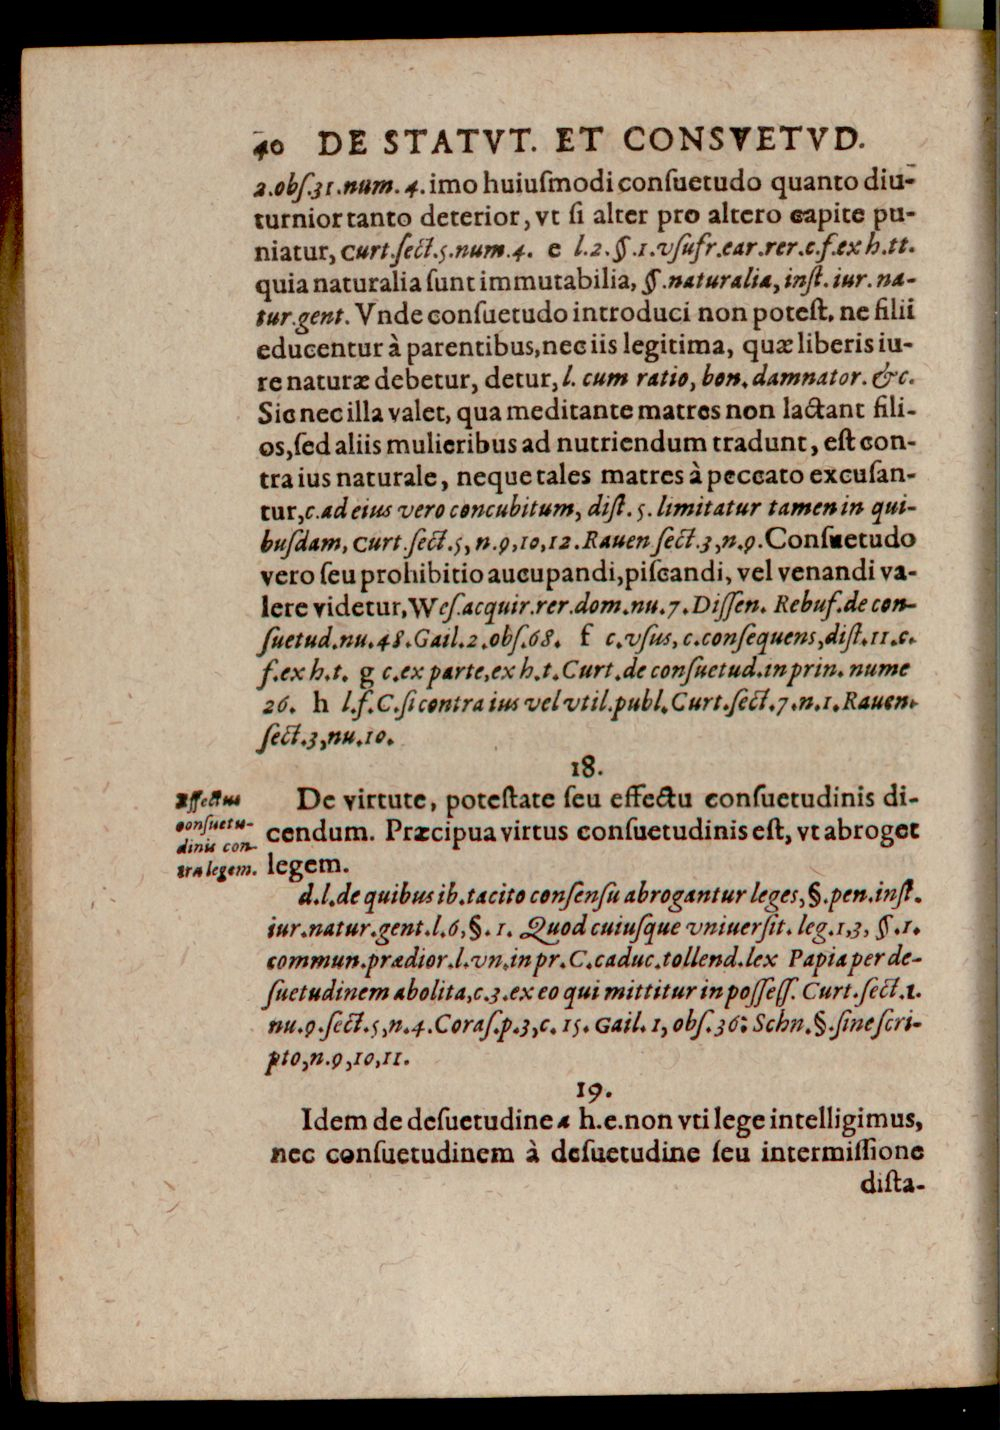 40 DE STATVT. ET CONSVETVD.
2.obſ.31.num. 4. imo huiuſmodi conſuetudo quanto diu-
turnior tanto deterior, vt ſi alter pro altero capite pu-
niatur, Curt.ſect.5.num.4. e l.2.§.1.vſufr.ear.rer.c.f.ex h.tt.
quia naturalia ſunt immutabilia, §.naturalia, inſt. iur. na-
tur.gent. Vnde conſuetudo introduci non poteſt, ne filii
educentur à parentibus, nec iis legitima, quæ liberis iu-
re naturæ debetur, detur, l. cum ratio, bon. damnator. &c.
Sic nec illa valet, qua meditante matres non lactant fili-
os, ſed aliis mulieribus ad nutriendum tradunt, eſt con-
tra ius naturale, neque tales matres à peccato excuſan-
tur, c.ad eius vero concubitum, diſt. 5. limitatur tamen in qui-
buſdam, Curt.ſect.5, n.9,10,12. Rauen ſect.3,n.9. Conſuetudo
vero ſeu prohibitio aucupandi, piſcandi, vel venandi va-
lere videtur, Weſ.acquir.rer.dom.nu.7. Diſſen. Rebuf.de con-
ſuetud.nu.48.Gail.2.obſ.68. f c.vſus, c.conſequens, diſt.11.c.
f.ex h.t. g c.ex parte, ex h.t. Curt.de conſuetud.in prin. nume
26. h l.f.C.ſi contra ius vel vtil.publ. Curt.ſect.7.n.1. Rauen.
ſect.3,nu.10.
18.
Effectus
conſuetu-
dinis con-
tra legem.
De virtute, poteſtate ſeu effectu conſuetudinis di-
cendum. Præcipua virtus conſuetudinis eſt, vt abroget
legem.
d.l.de quibus ib. tacito conſenſu abrogantur leges, §.pen.inſt.
iur.natur.gent.l.6,§. 1. Quod cuiuſque vniuerſit. leg.1,3, §.1.
commun.prædior.l.vn.in pr.C.caduc.tollend.lex Papia per de-
ſuetudinem abolita, c.3. ex eo qui mittitur in poſſeſſ. Curt.ſect.1.
nu.9.ſect.5,n.4.Coraſ.p.3,c. 15. Gail. 1, obſ.36: Schn.§.ſine ſcri-
pto,n.9,10,11.
19.
Idem de deſuetudine a h.e.non vti lege intelligimus,
nec conſuetudinem à deſuetudine ſeu intermiſſione
diſta-